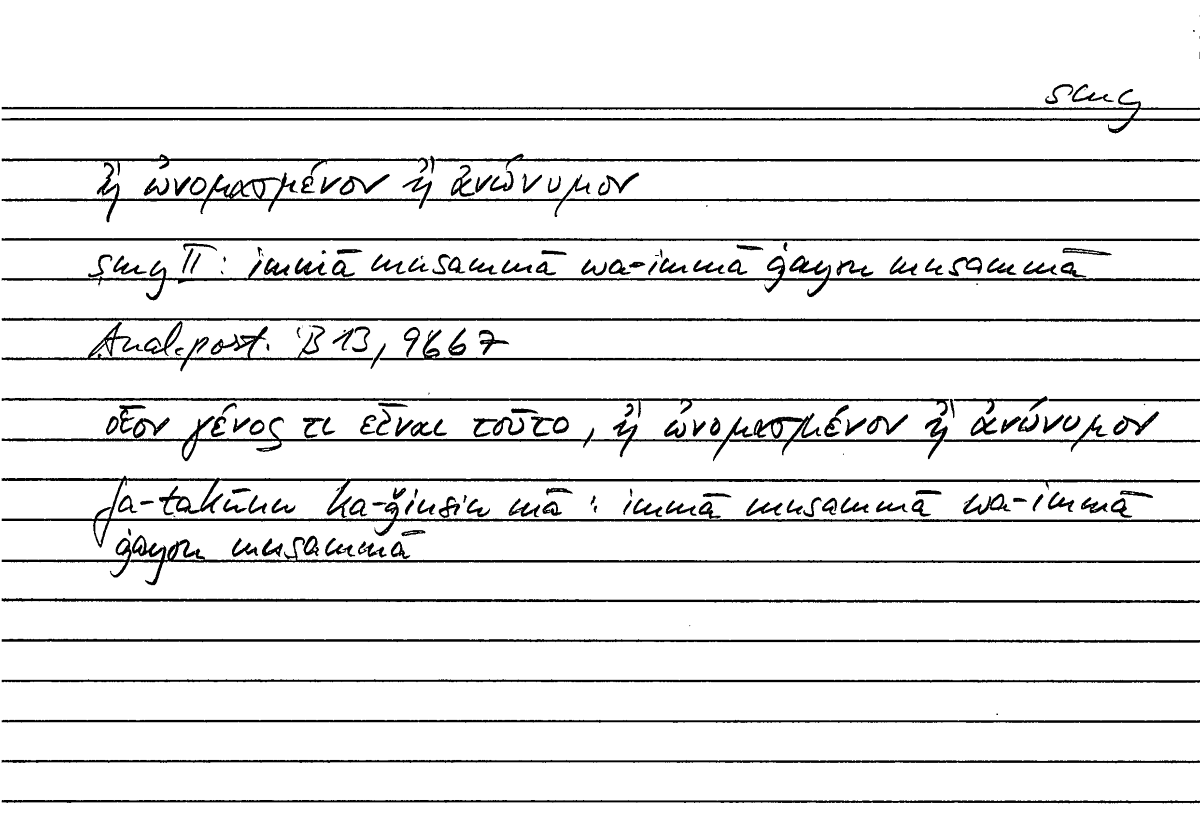 smy
ἢ ὠνομασμένον ἢ ἀνώνυμον
smy II: immā musammā wa-immā ġayru musammā
Anal. post. B 13, 96b7
οἷον γένος τι εἶναι τοῦτο, ἢ ὠνομασμένον ἢ ἀνώνυμον
fa-takūnu ka-ǧinsin mā: immā musammā wa-immā
ġayru musammā